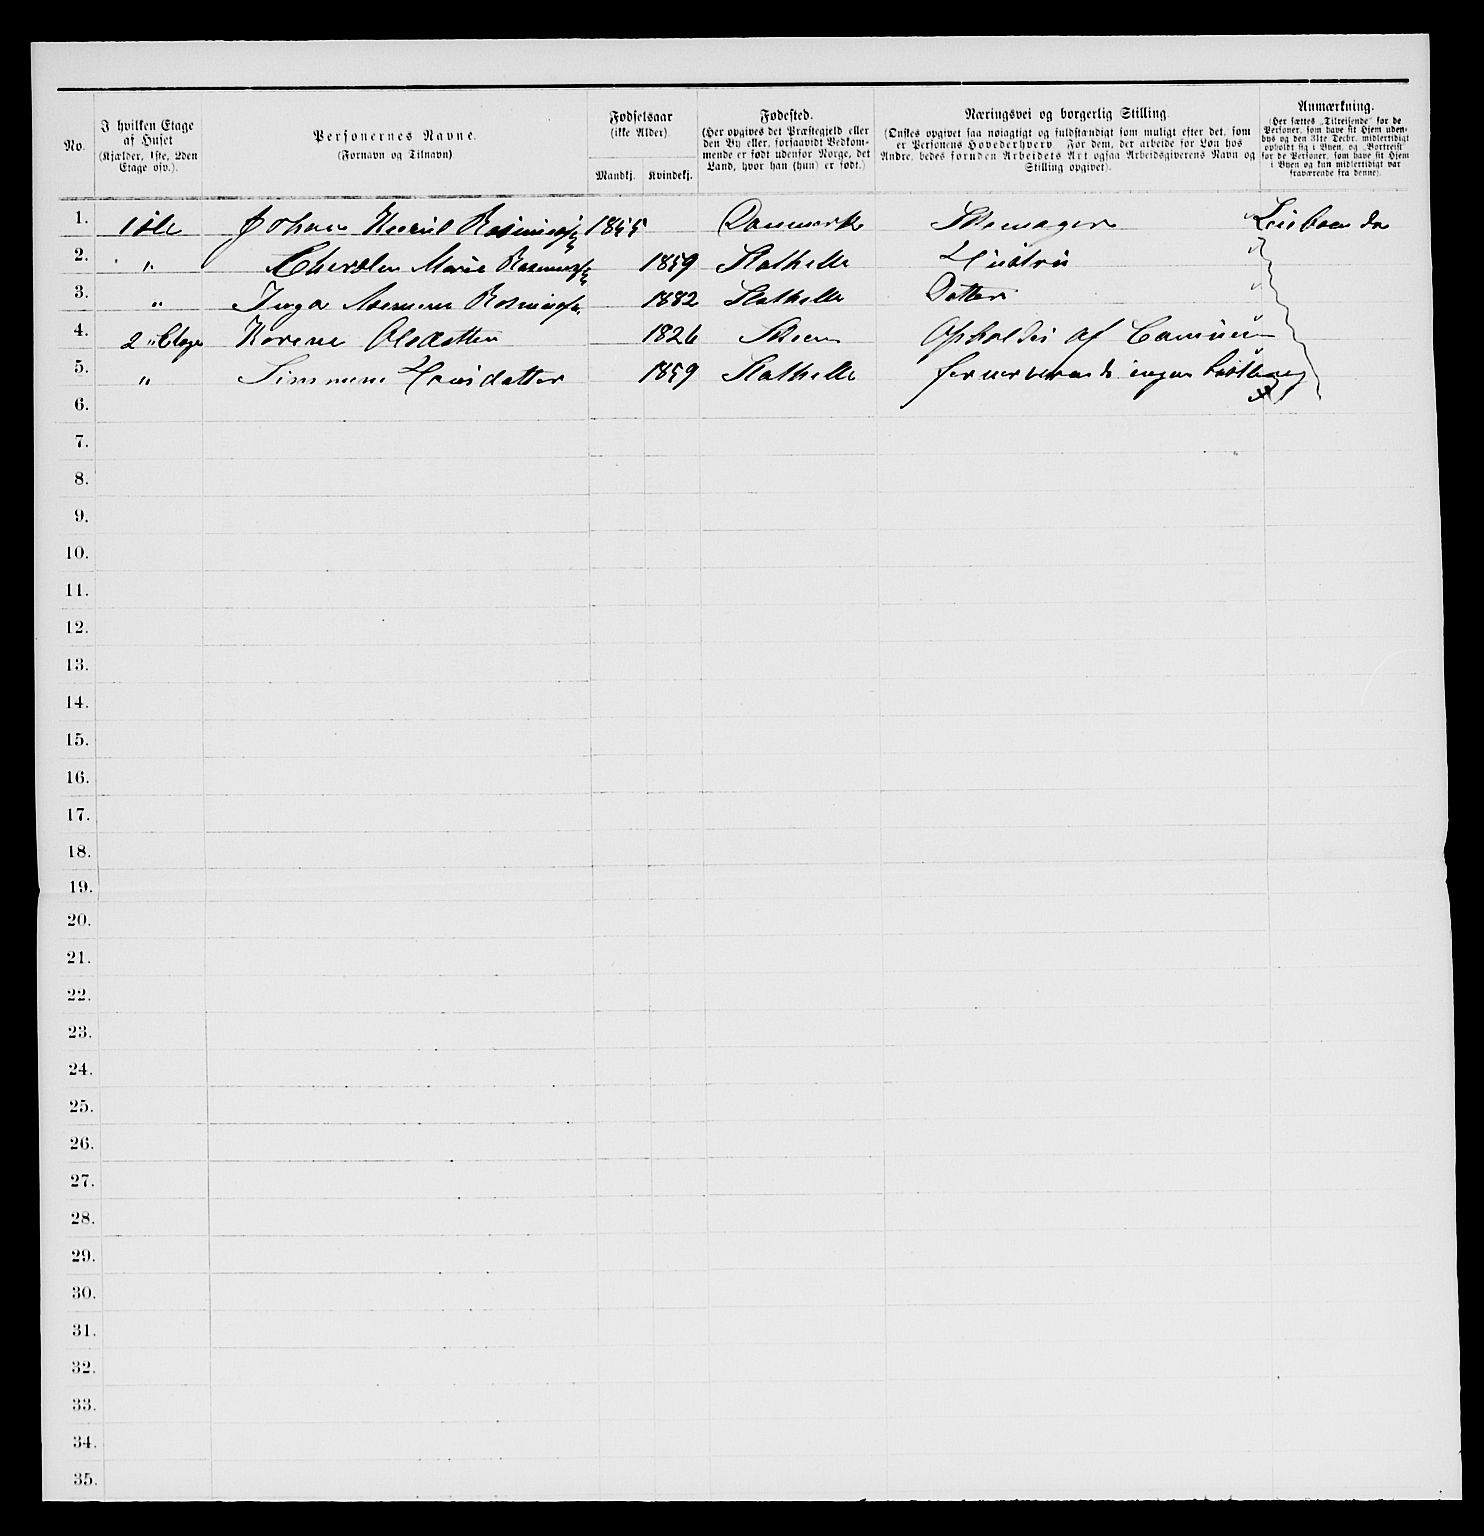 No.
I hvilken Etage
af Huset
(Kjælder, 1ste, 2den
Etage osv.).
Personernes Navne.
(Fornavn og Tilnavn)
Fødselsaar
(ikke Alder).
Mandkj. Kvindekj.
Fødested.
(Her opgives det Præstegjeld eller
den By eller, forsaavidt Vedkom-
mende er født udenfor Norge, det
Land, hvor han (hun) er født.)
Næringsvei og borgerlig Stilling.
(Ønskes opgivet saa nøiagtigt og fuldstændigt som muligt efter det, som
er Personens Hovederhverv. For dem, der arbeide for Løn hos
Andre, bedes foruden Arbeidets Art ogsaa Arbeidsgiverens Navn og
Stilling opgivet).
Anmærkning.
(Her sættes „Tilreisende“ for de
Personer, som have sit Hjem uden-
bys og den 31te Decbr. midlertidigt
opholdt sig i Byen, og „Bortreist“
for de Personer, som have sit Hjem
i Byen og kun midlertidigt var
fraværende fra denne).
1. 1ste Johan 1855 Danmark Skomager
2. " Marie 1859 Stathelle Hustru
3. " Inga 1882 Stathelle Datter
4. 2 " Etage Karene Olsdatter 1826 Skien af
5. " 1859 Stathelle ingen
6.
7.
8.
9.
10.
11.
12.
13.
14.
15.
16.
17.
18.
19.
20.
21.
22.
23.
24.
25.
26.
27.
28.
29.
30.
31.
32.
33.
34.
35.